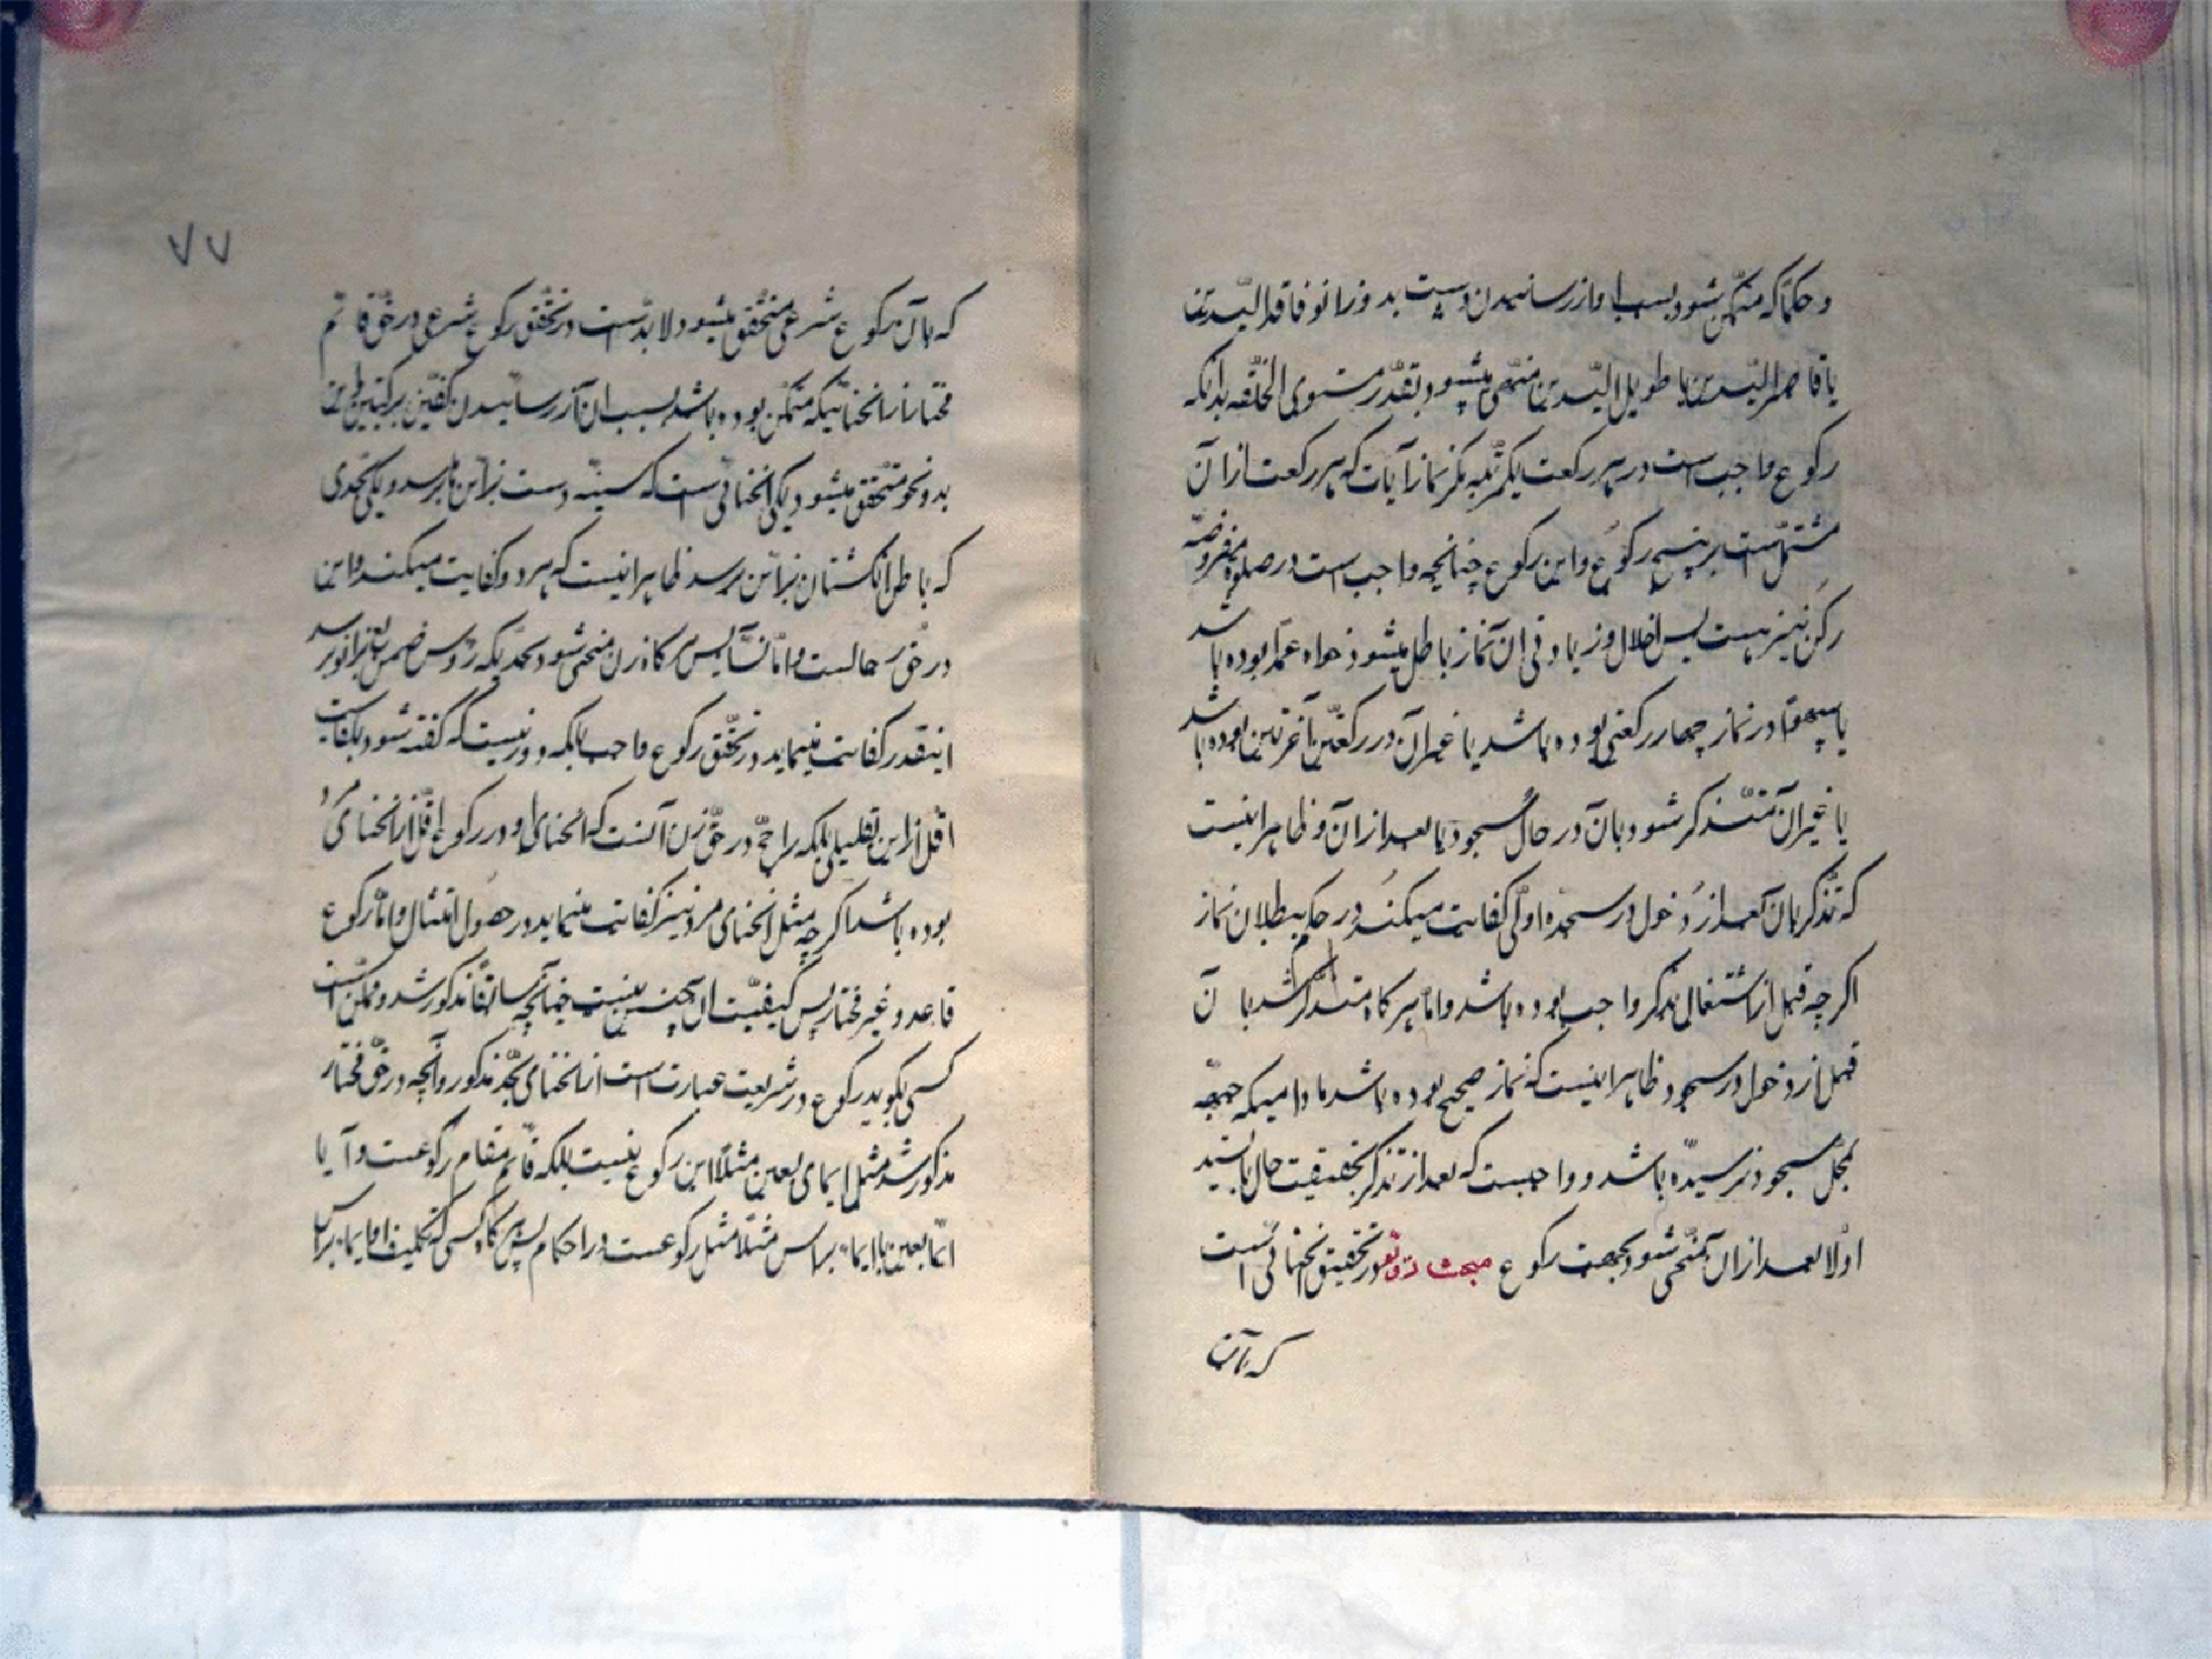 و حکما که متمکن شود بسبب او از رسانیدن دست بدو زانو فاقد الیدین
یا قاصر الیدین یا طویل الیدین منتهی میشود بقدر مستوی الخلقه بدانکه
رکوع واجب است در هر رکعت یکمرتبه مگر نماز آیات که هر رکعت از آن
مشتمل است بر پنج رکوع و این رکوع چنانچه واجب است در صلوة مفروضه
رکن نیز هست پس اخلال و زیادتی آن نماز باطل میشود خواه عمدا بوده باشد
یا سهوا در نماز چهار رکعتی بوده باشد یا غیر آن در رکعتین آخرتین بوده باشد
یا غیر آن متذکر شود بآن در حال سجود یا بعد از آن و ظاهر اینست
که تذکر بآن بعد از دخول در سجده اولی کفایت میکند در حکم ببطلان نماز
اگر چه قبل از اشتغال بذکر واجب بوده باشد و اما هر گاه متذکر شد بآن
قبل از دخول در سجود ظاهر اینست که نماز صحیح بوده باشد مادامیکه جبهه
بمحل سجود نرسیده باشد و واجبست که بعد از تذکر بحقیقت حال بایستد
اولا بعد از آن منحنی شود بجهت رکوع مبحث در تحقیق انحنائی است
که بآن
۷۷
که بآن رکوع شرعی متحقق میشود لابد است در تحقق رکوع شرعی در حق قائم
مختار از انحنائیکه متمکن بوده باشد بسبب آن از رسانیدن کفین برکبتین و این
بدو نحو متحقق میشود یکی انحنائی است که دست بزانین برسد و یکی بحدی
که باطن انگشتان بزانین برسد ظاهر اینست که هر دو کفایت میکند و این
در حق رجالست و اما نساء پس هر گاه زن منحنی شود بحدیکه رؤس اصابع بزانو رسد
اینقدر کفایت مینماید در تحقق رکوع واجب بلکه دور نیست که گفته شود بکفایت
اقل از این بقلیلی بلکه راجح در حق زن آنست که انحنای او در رکوع اقل از انحنای مرد
بوده باشد اگر چه مثل انحنای مرد نیز کفایت مینماید در حصول امتثال و اما رکوع
قاعد و غیر مختار پس کیفیت آن چنین نیست چنانچه سابقا مذکور شد و ممکن است
کسی بگوید رکوع در شریعت عبارت است از انحنای بحد مذکور و آنچه در حق غیر مختار
مذکور شد مثل ایمای بعین مثلا این رکوع نیست بلکه قائم مقام رکوعست و آیا
ایما بعین یا ایماء براس مثلا مثل رکوعست در احکام پس هر گاه کسی که تکلیف او ایماء براس